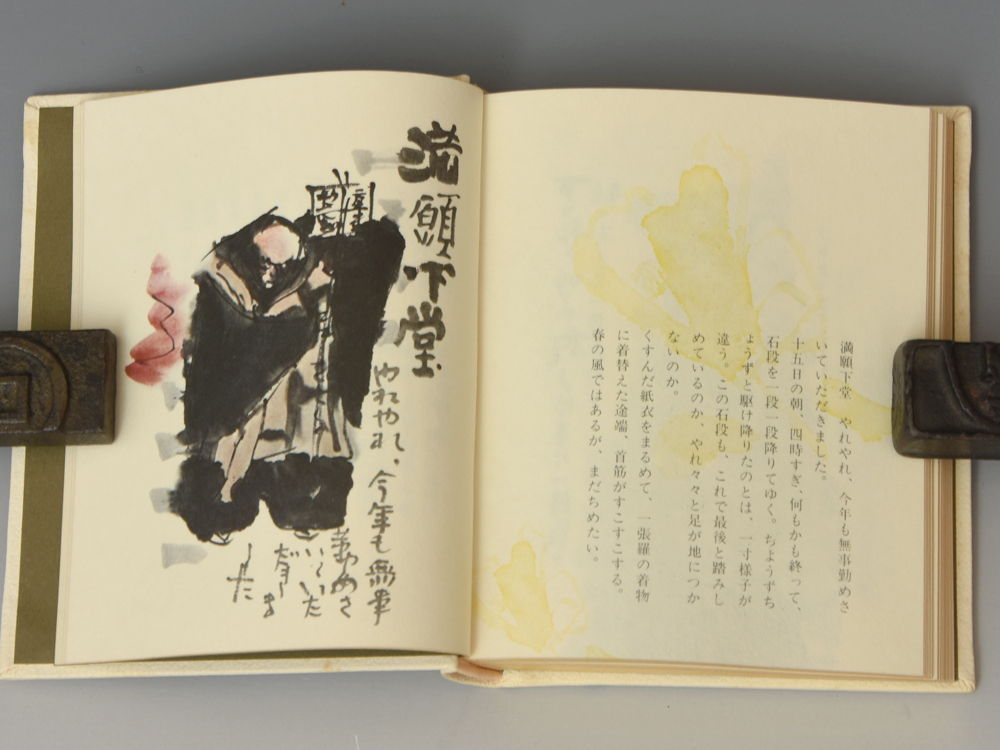 満願下堂
やれやれ、今年も無事
勤めさ
せていた
だきま
した
満願下堂　やれやれ、今年も無事勤めさ
いていただきました。
十五日の朝、四時すぎ、何もかも終って、
石段を一段一段降りてゆく。ぢょうずち
ょうずと駆け降りたのとは、一寸様子が
違う。この石段も、これで最後と踏みし
めているのか、やれ々々と足が地につか
ないのか。
くすんだ紙衣をまるめて、一張羅の着物
に着替えた途端、首筋がすこすこする。
春の風ではあるが、まだちめたい。